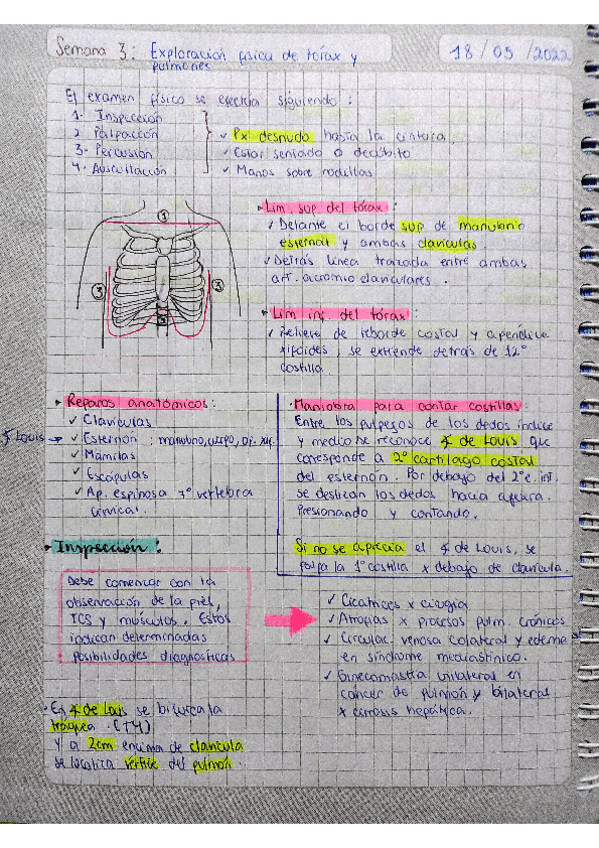 Semana 3: Exploración física de tórax y
pulmones
18/05/2022
El examen físico se ejecuta siguiendo:
1- Inspección
2 Palpación
3- Percusión
4- Auscultación
✓ Px desnudo hasta la cintura
✓ Estar sentado o decúbito
✓ Manos sobre rodillas
Lim. sup del tórax:
✓ Delante el borde sup de manubrio
esternal y ambas clavículas
✓ Detrás línea trazada entre ambas
art. acromio claviculares.
1
3
3
2
Lim inf del tórax:
✓ Relieve de reborde costal y apéndice
xifoides, se extiende detrás de 12°
costilla
Reparos anatómicos:
✓ Clavículas
∡ Louis → ✓ Esternón: manubrio, cuerpo, ap. xif.
✓ Mamilas
✓ Escápulas
✓ Ap. espinosa 7° vertebra
cervical.
Maniobra para contar costillas:
Entre los pulpejos de los dedos índice
y medio se reconoce ∡ de Louis que
corresponde a 2° cartílago costal
del esternón. Por debajo del 2° e. int.
se deslizan los dedos hacia afuera.
Presionando y contando.
Si no se aprecia el ∡ de Louis, se
palpa la 1° costilla x debajo de clavícula.
Inspección:
Debe comenzar con la
observación de la piel,
TCS y músculos. Estos
indican determinadas
posibilidades diagnosticas
✓ Cicatrices x cirugía
✓ Atrofias x procesos pulm. crónicos.
✓ Circulac. venosa colateral y edema
en síndrome mediastínico.
✓ Ginecomastia unilateral en
cáncer de pulmón y bilateral
x cirrosis hepática.
En ∡ de Louis se bifurca la
tráquea. (T4)
y a 2cm encima de clavícula
se localiza vértice del pulmón.